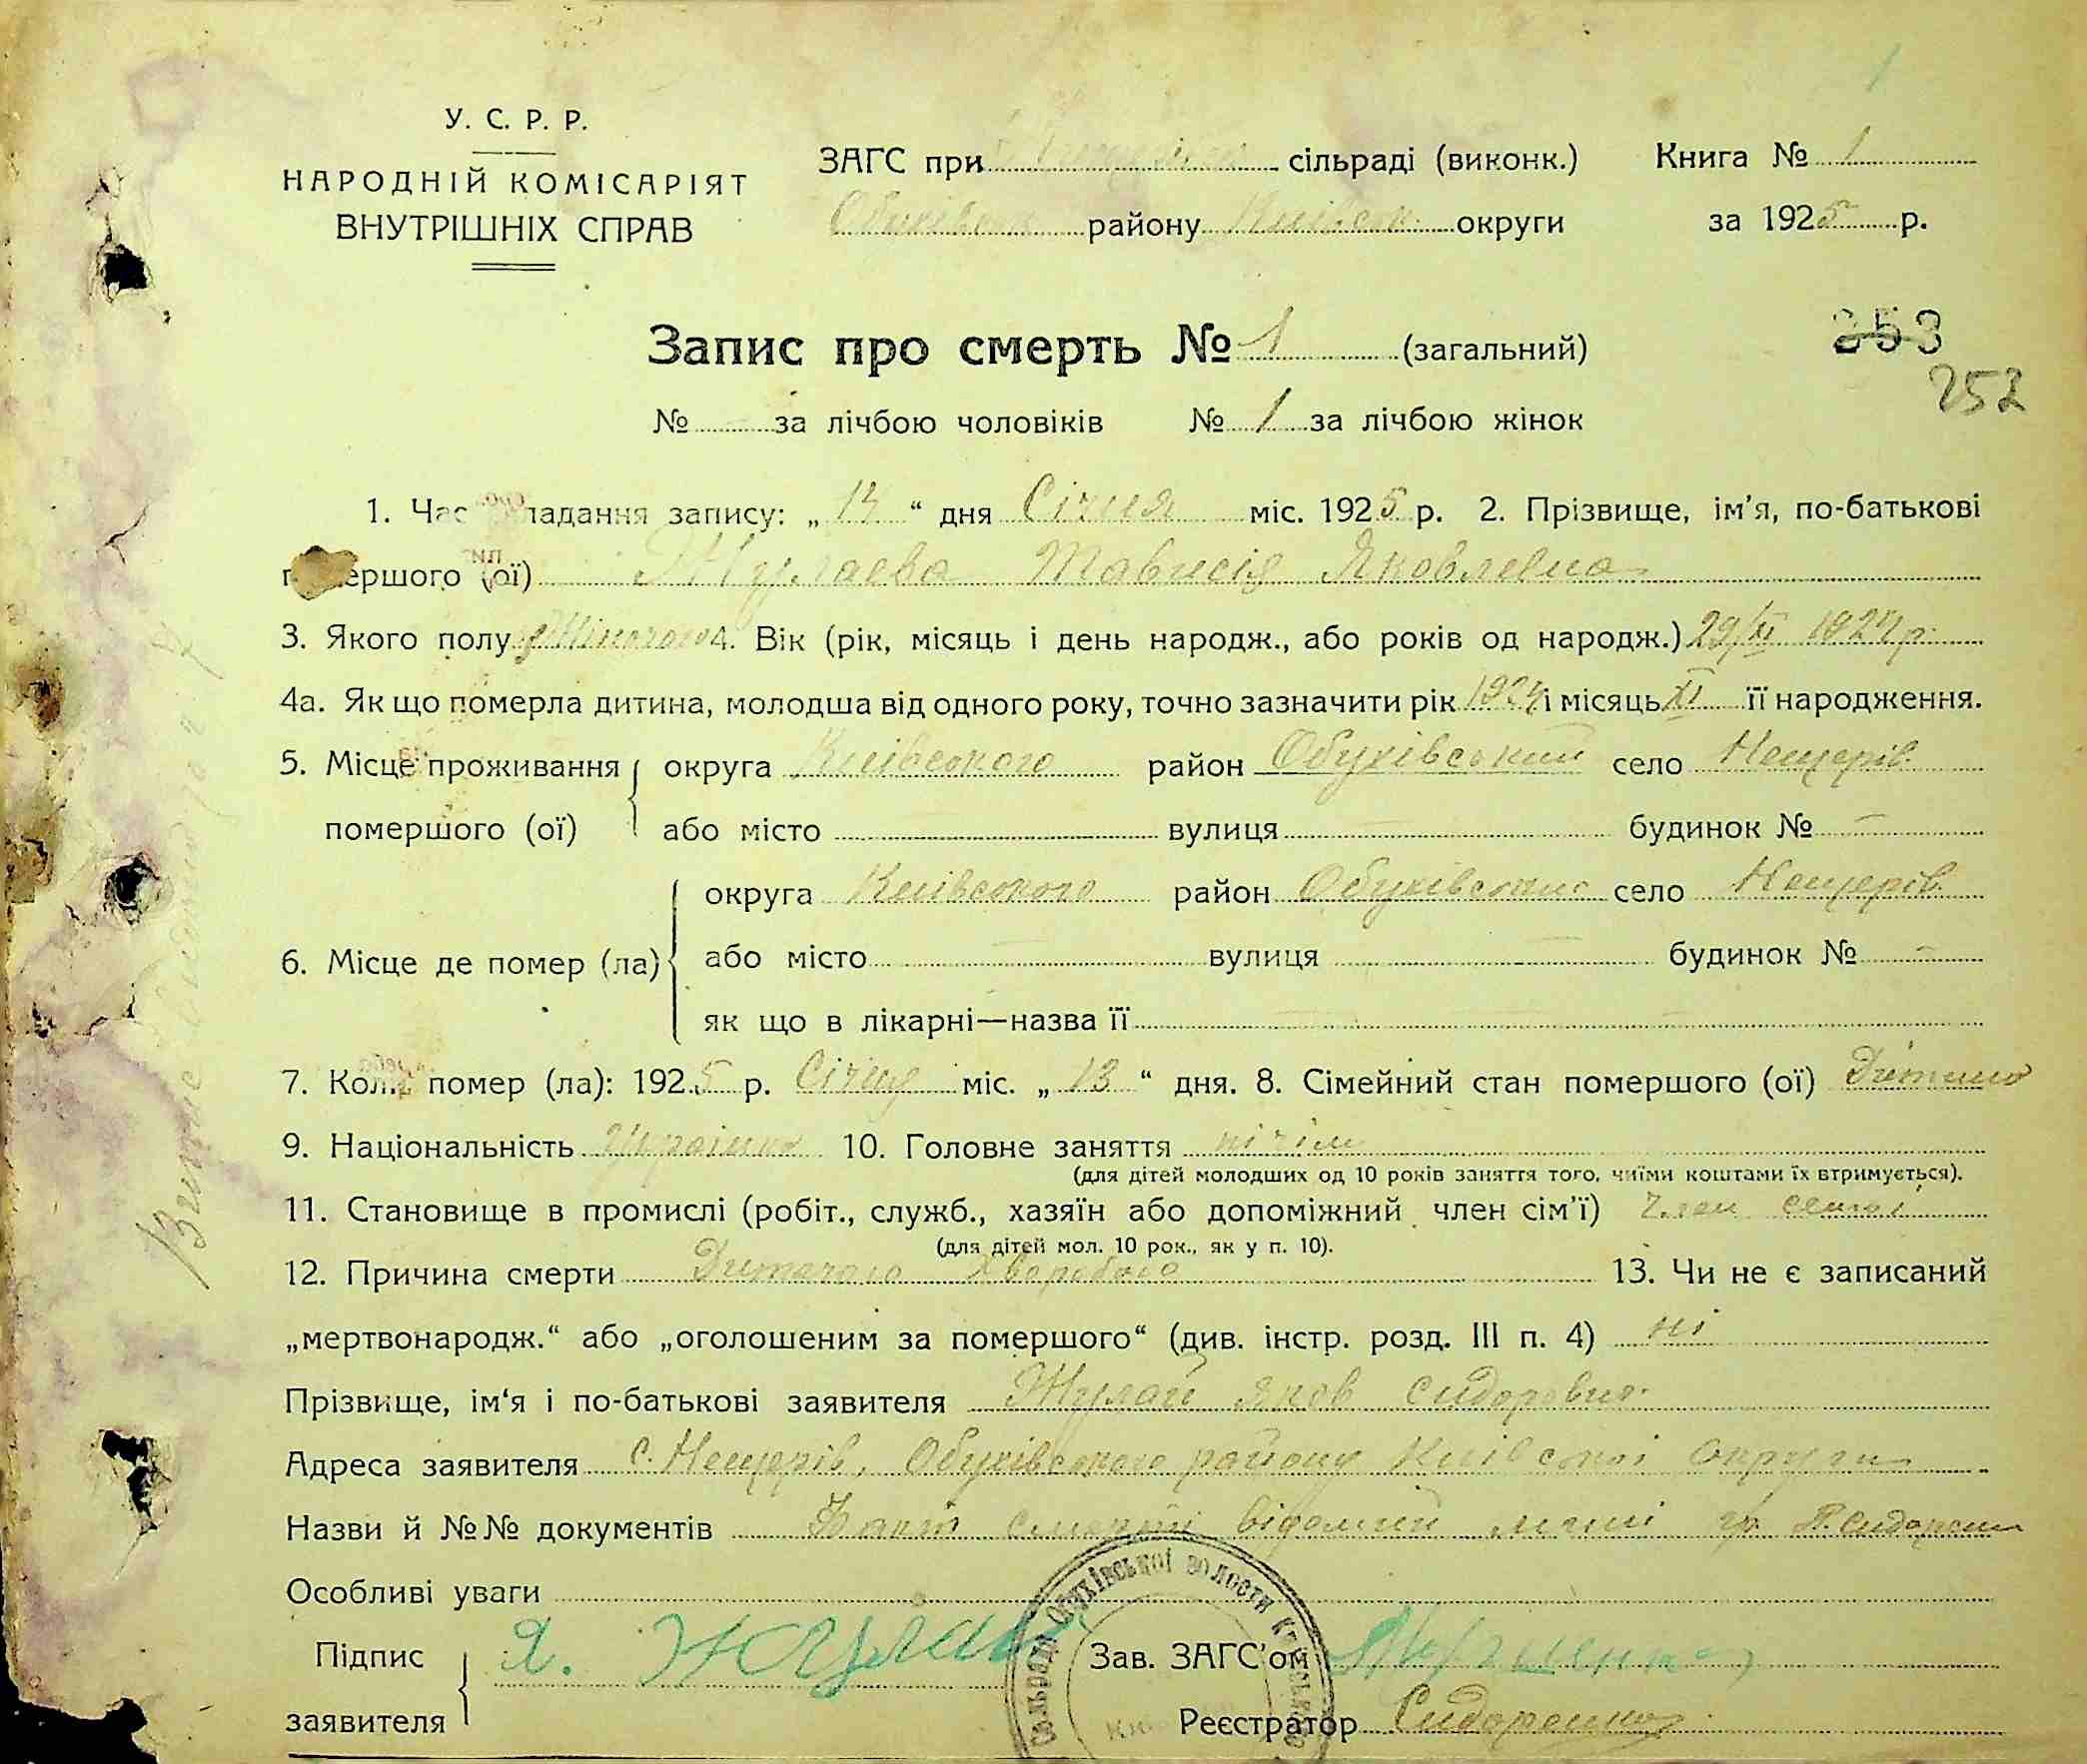 У. С. Р. Р.
НАРОДНІЙ КОМІСАРІЯТ
ВНУТРІШНІХ СПРАВ
ЗАГС при сільраді (виконк.) Книга № 1
Обухівськ району Київськ. округи за 1925 р.
Запис про смерть № 1 (загальний)
353
252
№ — за лічбою чоловіків № 1 за лічбою жінок
1. Час складання запису: „14“ дня Січня міс. 1925 р. 2. Прізвище, ім'я, по-батькові
помершого (ої) Жулаева Тависія Яковлевна
3. Якого полу Жіночого 4. Вік (рік, місяць і день народж., або років од народж.) 29/XI 1924 р.
4а. Як що померла дитина, молодша від одного року, точно зазначити рік 1924 і місяць XI її народження.
5. Місце проживання округа Київського район Обухівський село Нещерів.
помершого (ої) або місто — вулиця будинок № —
6. Місце де помер (ла) округа Київського район Обухівський село Нещерів.
або місто — вулиця — будинок № —
як що в лікарні—назва її —
7. Коли помер (ла): 1925 р. Січня міс. „13“ дня. 8. Сімейний стан помершого (ої) Дитина
9. Національність Українка 10. Головне заняття нічім
(для дітей молодших од 10 років заняття того, чиїми коштами їх втримується).
11. Становище в промислі (робіт., служб., хазяїн або допоміжний член сім'ї) Член семьї
(для дітей мол. 10 рок., як у п. 10).
12. Причина смерти Дитячого хвороба 13. Чи не є записаний
„мертвонародж.“ або „оголошеним за помершого“ (див. інстр. розд. III п. 4) ні
Прізвище, ім'я і по-батькові заявителя Жулай Яков Сидорович.
Адреса заявителя с. Нещерів, Обухівського району Київської округи
Назви й №№ документів Факт смерти відомий гр. Сидоренко
Особливі уваги
Підпис заявителя Я. Жулай Зав. ЗАГС'ом
Реєстратор Сидоренко
Сільрада Обухівської волости